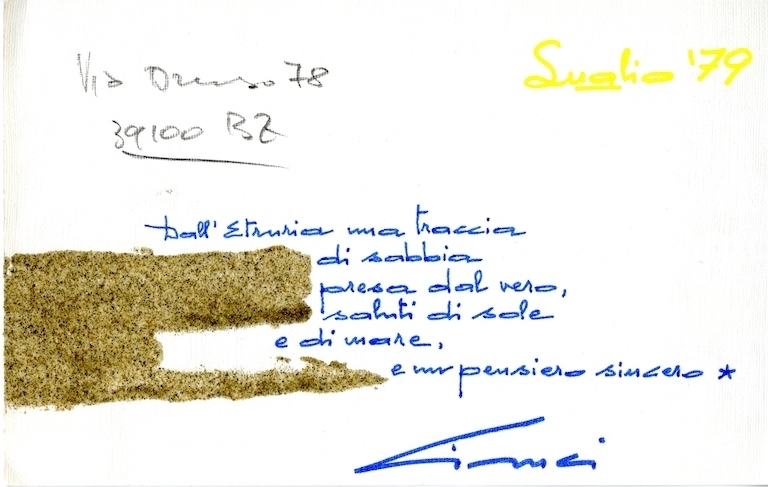 Via Druso 78
39100 BZ
Luglio '79
Dall'Etruria una traccia
di sabbia
presa dal vero,
saluti di sole
e di mare,
e un pensiero sincero *